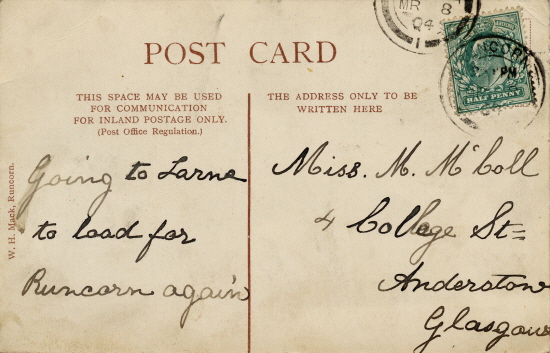 MR 8
04
RUNCORN
PM
HALF PENNY
POST CARD
THIS SPACE MAY BE USED
FOR COMMUNICATION
FOR INLAND POSTAGE ONLY.
(Post Office Regulation.)
THE ADDRESS ONLY TO BE
WRITTEN HERE
W. H. Mack, Runcorn.
Going to Larne
to load for
Runcorn again
Miss. M. McColl
4 College St=
Anderston
Glasgow